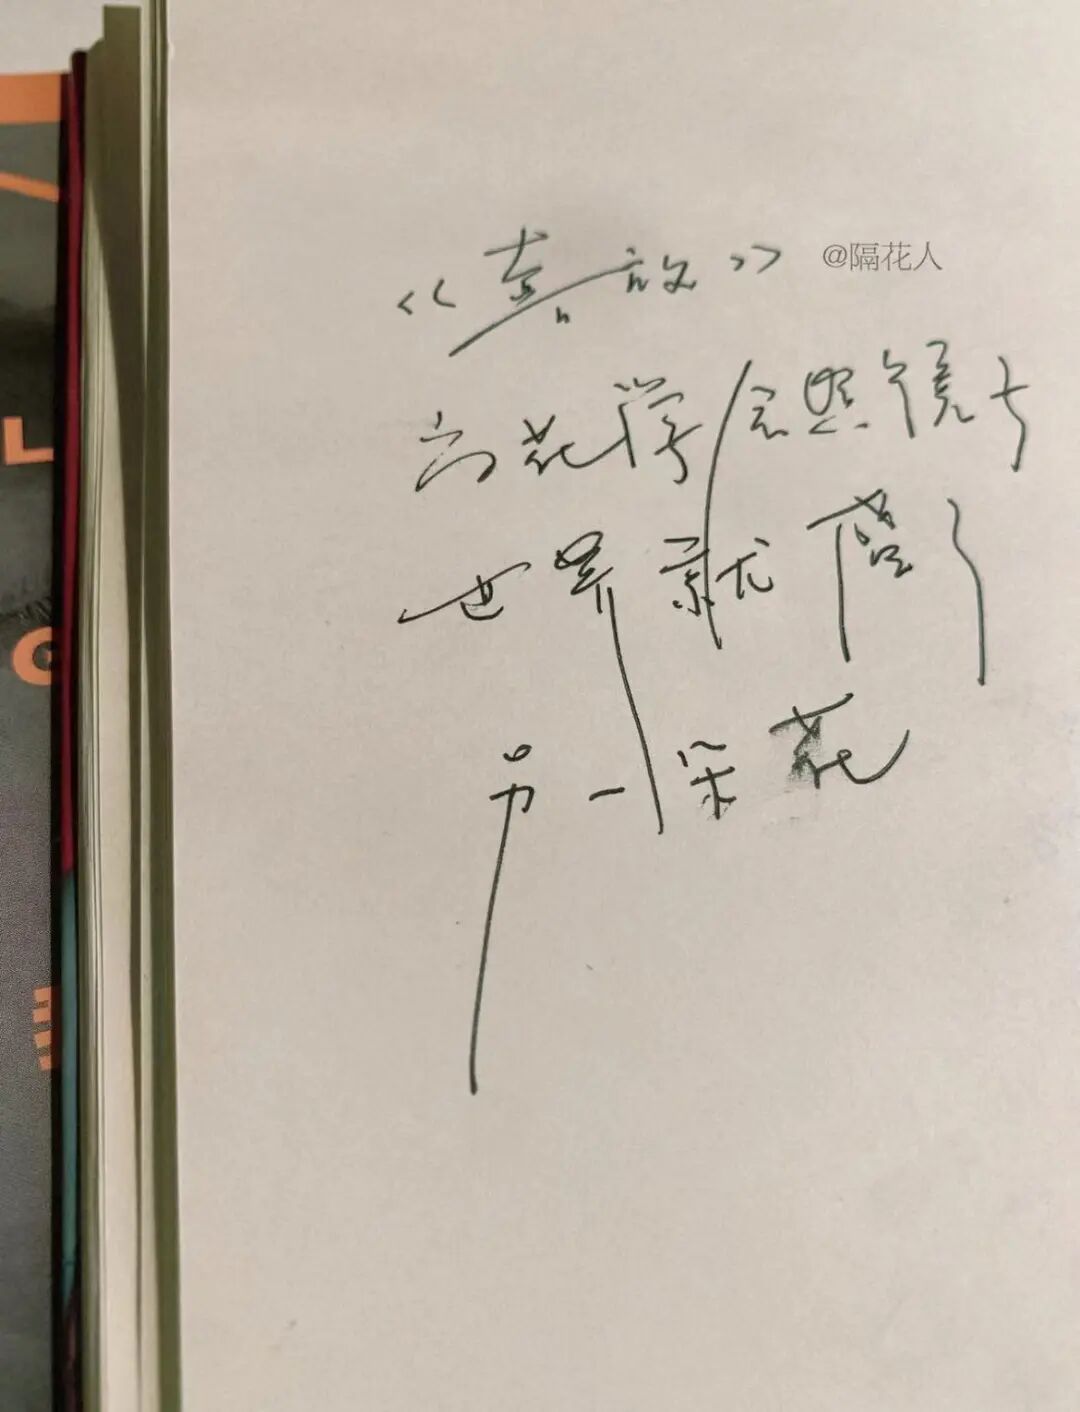 放
@隔花人
当花学会照镜子
世界就了
另一朵花
L
G